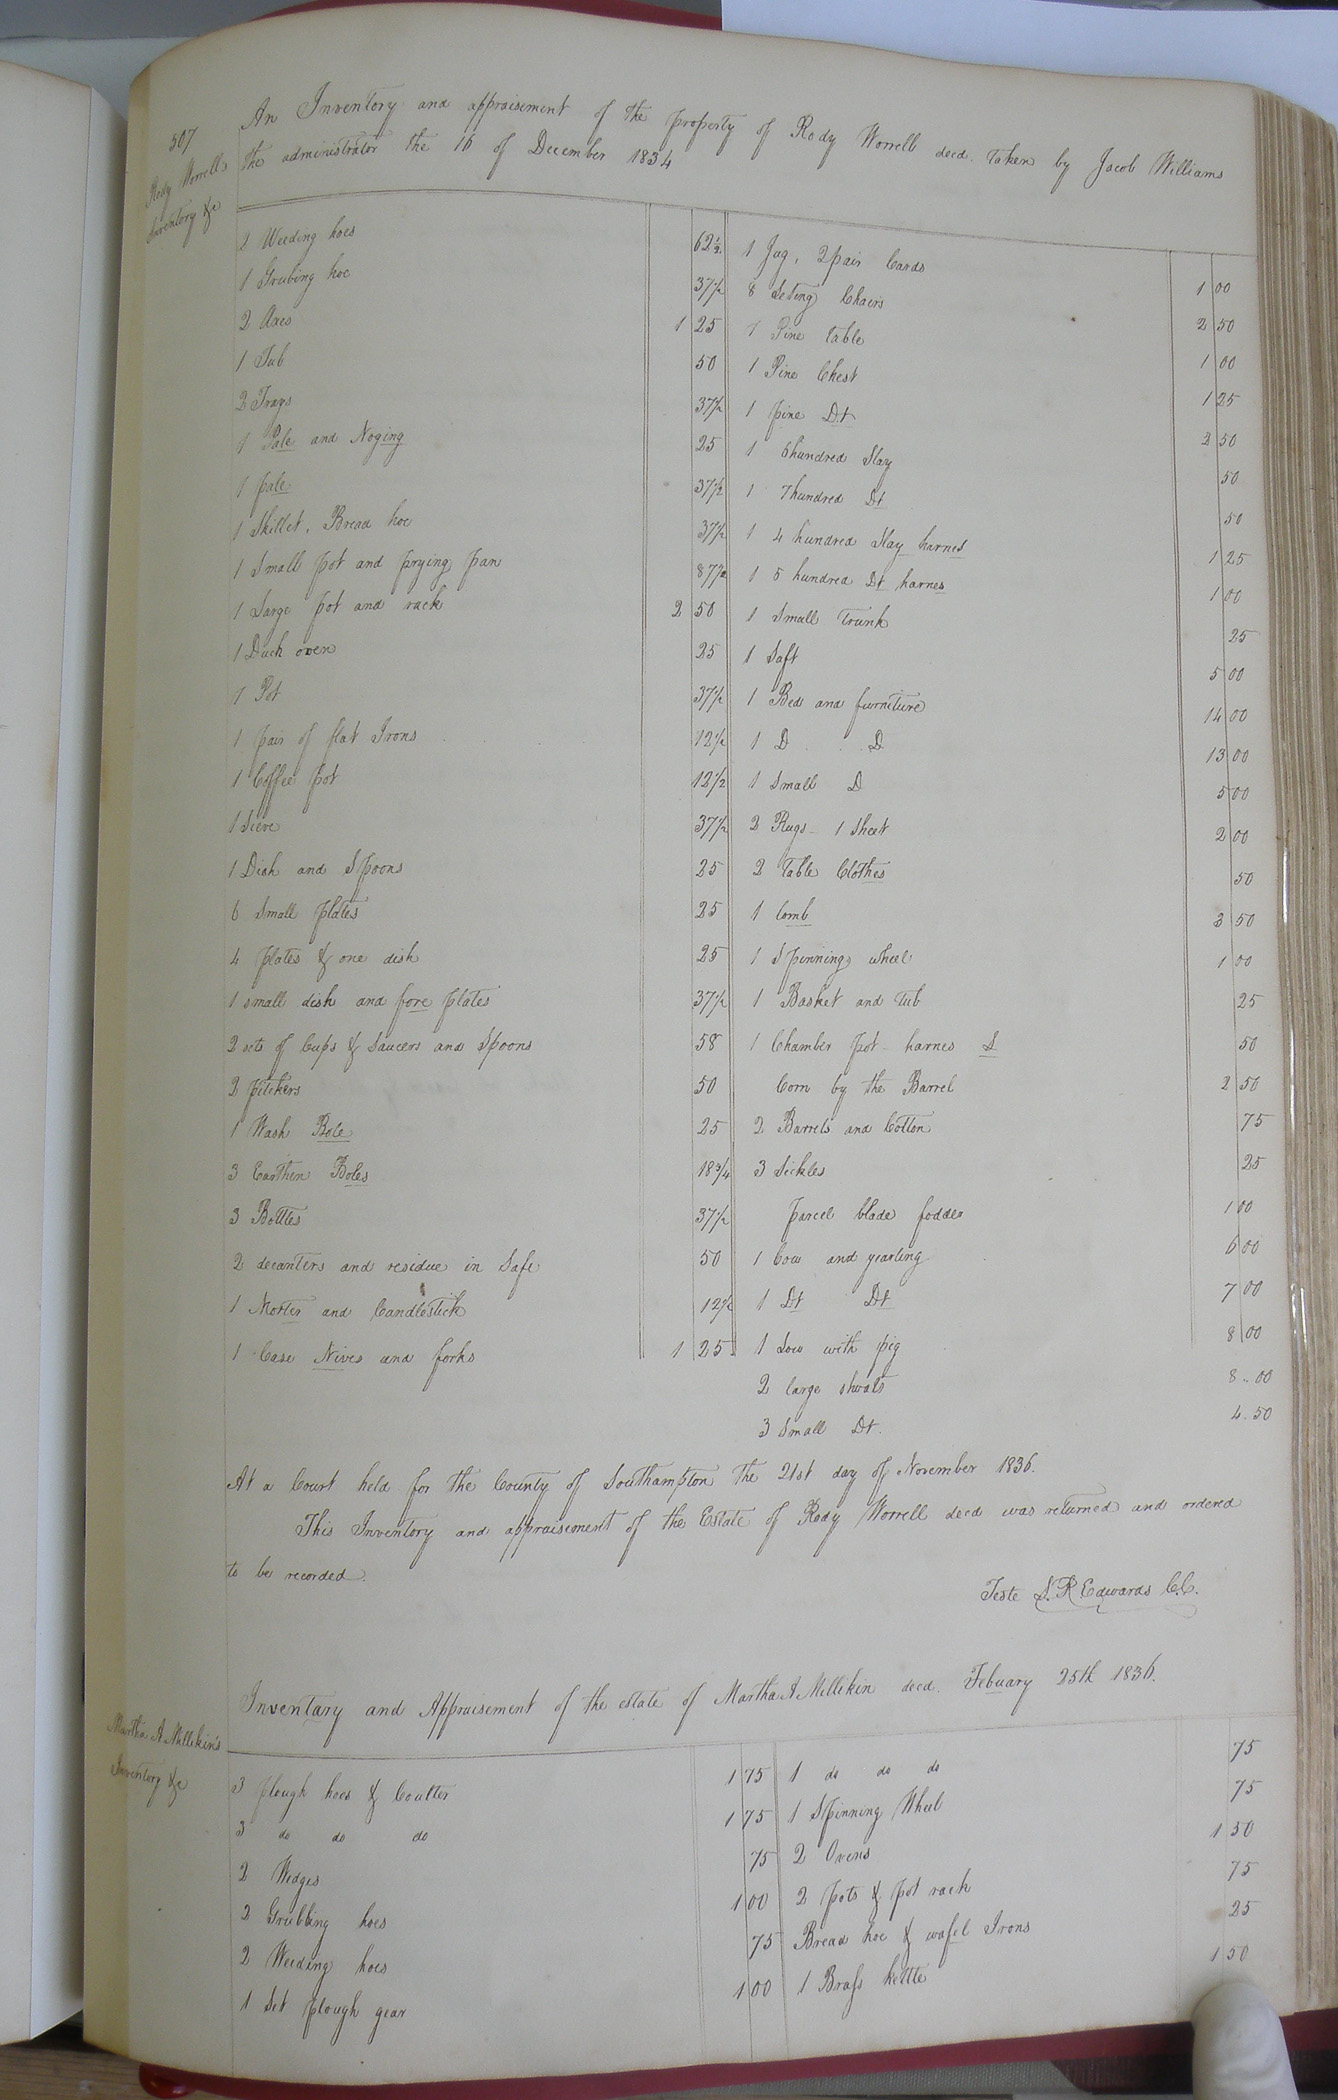 507
Rody Worrell's
Inventory &c
An Inventory and appraisement of the property of Rody Worrell decd. taken by Jacob Williams
the administrator the 16 of December 1834
2 Weeding hoes 62½
1 Grubing hoe 37½
2 Axes 1 25
1 Tub 50
2 Trays 37½
1 Pale and Noging 25
1 pale 37½
1 Skillet, Bread hoe 37½
1 Small pot and frying pan 87½
1 Large pot and rack 2 50
1 Duch oven 25
1 Pot 37½
1 pair of flat Irons 12½
1 Coffee pot 12½
1 Sieve 37½
1 Dish and Spoons 25
6 Small plates 25
4 plates & one dish 25
1 small dish and fore plates 37½
2 sets of Cups & Saucers and Spoons 58
2 pitchers 50
1 Wash Bole 25
3 Earthen Boles 18¾
3 Bottles 37½
2 decanters and residue in Safe 50
1 Morter and Candlestick 12½
1 Case Nives and forks 1 25
1 Jug, 2 pair Cards 1 00
8 Seting Chairs 2 50
1 Pine table 1 00
1 Pine Chest 1 25
1 pine Dt 2 50
1 6 hundred Slay 50
1 7 hundred Dt 50
1 4 hundred Slay harnes 1 25
1 5 hundred Dt harnes 1 00
1 Small Trunk 25
1 Saft 5 00
1 Bed and furniture 14 00
1 D D 13 00
1 Small D 5 00
2 Rugs - 1 Sheet 2 00
2 table Clothes 50
1 lomb 3 50
1 Spinning wheel 1 00
1 Basket and tub 25
1 Chamber pot - harnes S 50
Corn by the Barrel 2 50
2 Barrels and Cotton 75
3 Sickles 25
parcel blade fodder 1 00
1 Cow and yearling 6 00
1 Dt Dt 7 00
1 Sow with pig 8 00
2 large shoats 8..00
3 Small Dt. 4.50
At a Court held for the County of Southampton the 21st day of November 1836.
This Inventory and appraisement of the Estate of Rody Worrell decd was returned and ordered
to be recorded.
Teste L. R. Edwards C.C.
Martha A Millikin's
Inventory &c
Inventary and Appraisement of the estate of Martha A Millikin decd. Febuary 25th 1836.
3 plough hoes & Coulter 1 75
3 do do do 1 75
2 Wedges 75
2 Grubbing hoes 1 00
2 Weeding hoes 75
1 Set plough gear 1 00
1 do do do 75
1 Spinning Wheel 75
2 Ovens 1 50
2 pots & pot rack 75
Bread hoe & wafel Irons 25
1 Brass kettle 1 50